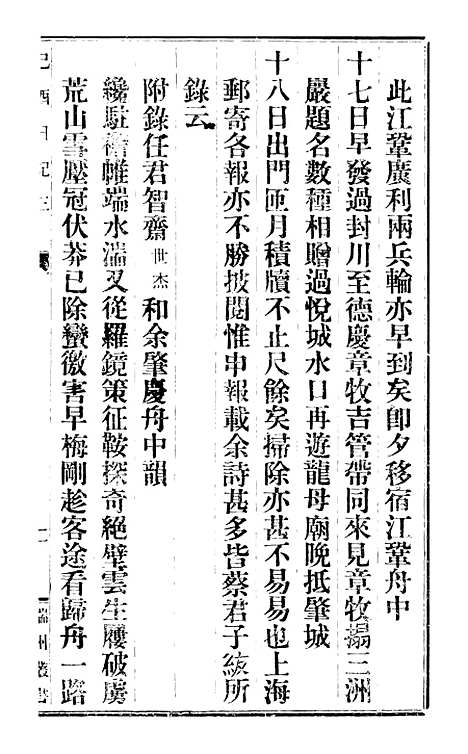 此江鞏廣利兩兵輪亦早到矣卽夕移宿江鞏舟中
十七日早發過封川至德慶章牧吉管帶同來見章牧搨三洲
巖題名數種相贈過悅城水口再遊龍母廟晚抵肇城
十八日出門匝月積牘不止尺餘矣掃除亦甚不易易也上海
郵寄各報亦不勝披閱惟申報載余詩甚多皆蔡君子紱所
錄云
附錄任君智齋世杰和余肇慶舟中韻
纔駐襜帷端水湍又從羅鏡策征鞍探奇絕壁雲生屨破虜
荒山雪壓冠伏莽已除蠻徼害早梅剛趁客途看歸舟一路
己酉日記三
二
端州叢書